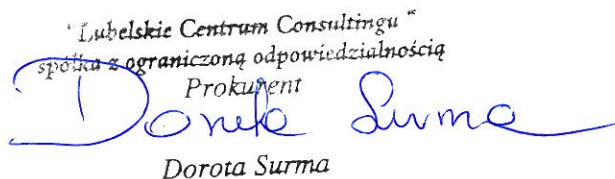 "Lubelskie Centrum Consultingu"
spółka z ograniczoną odpowiedzialnością
Prokurent
Dorota Surma
Dorota Surma